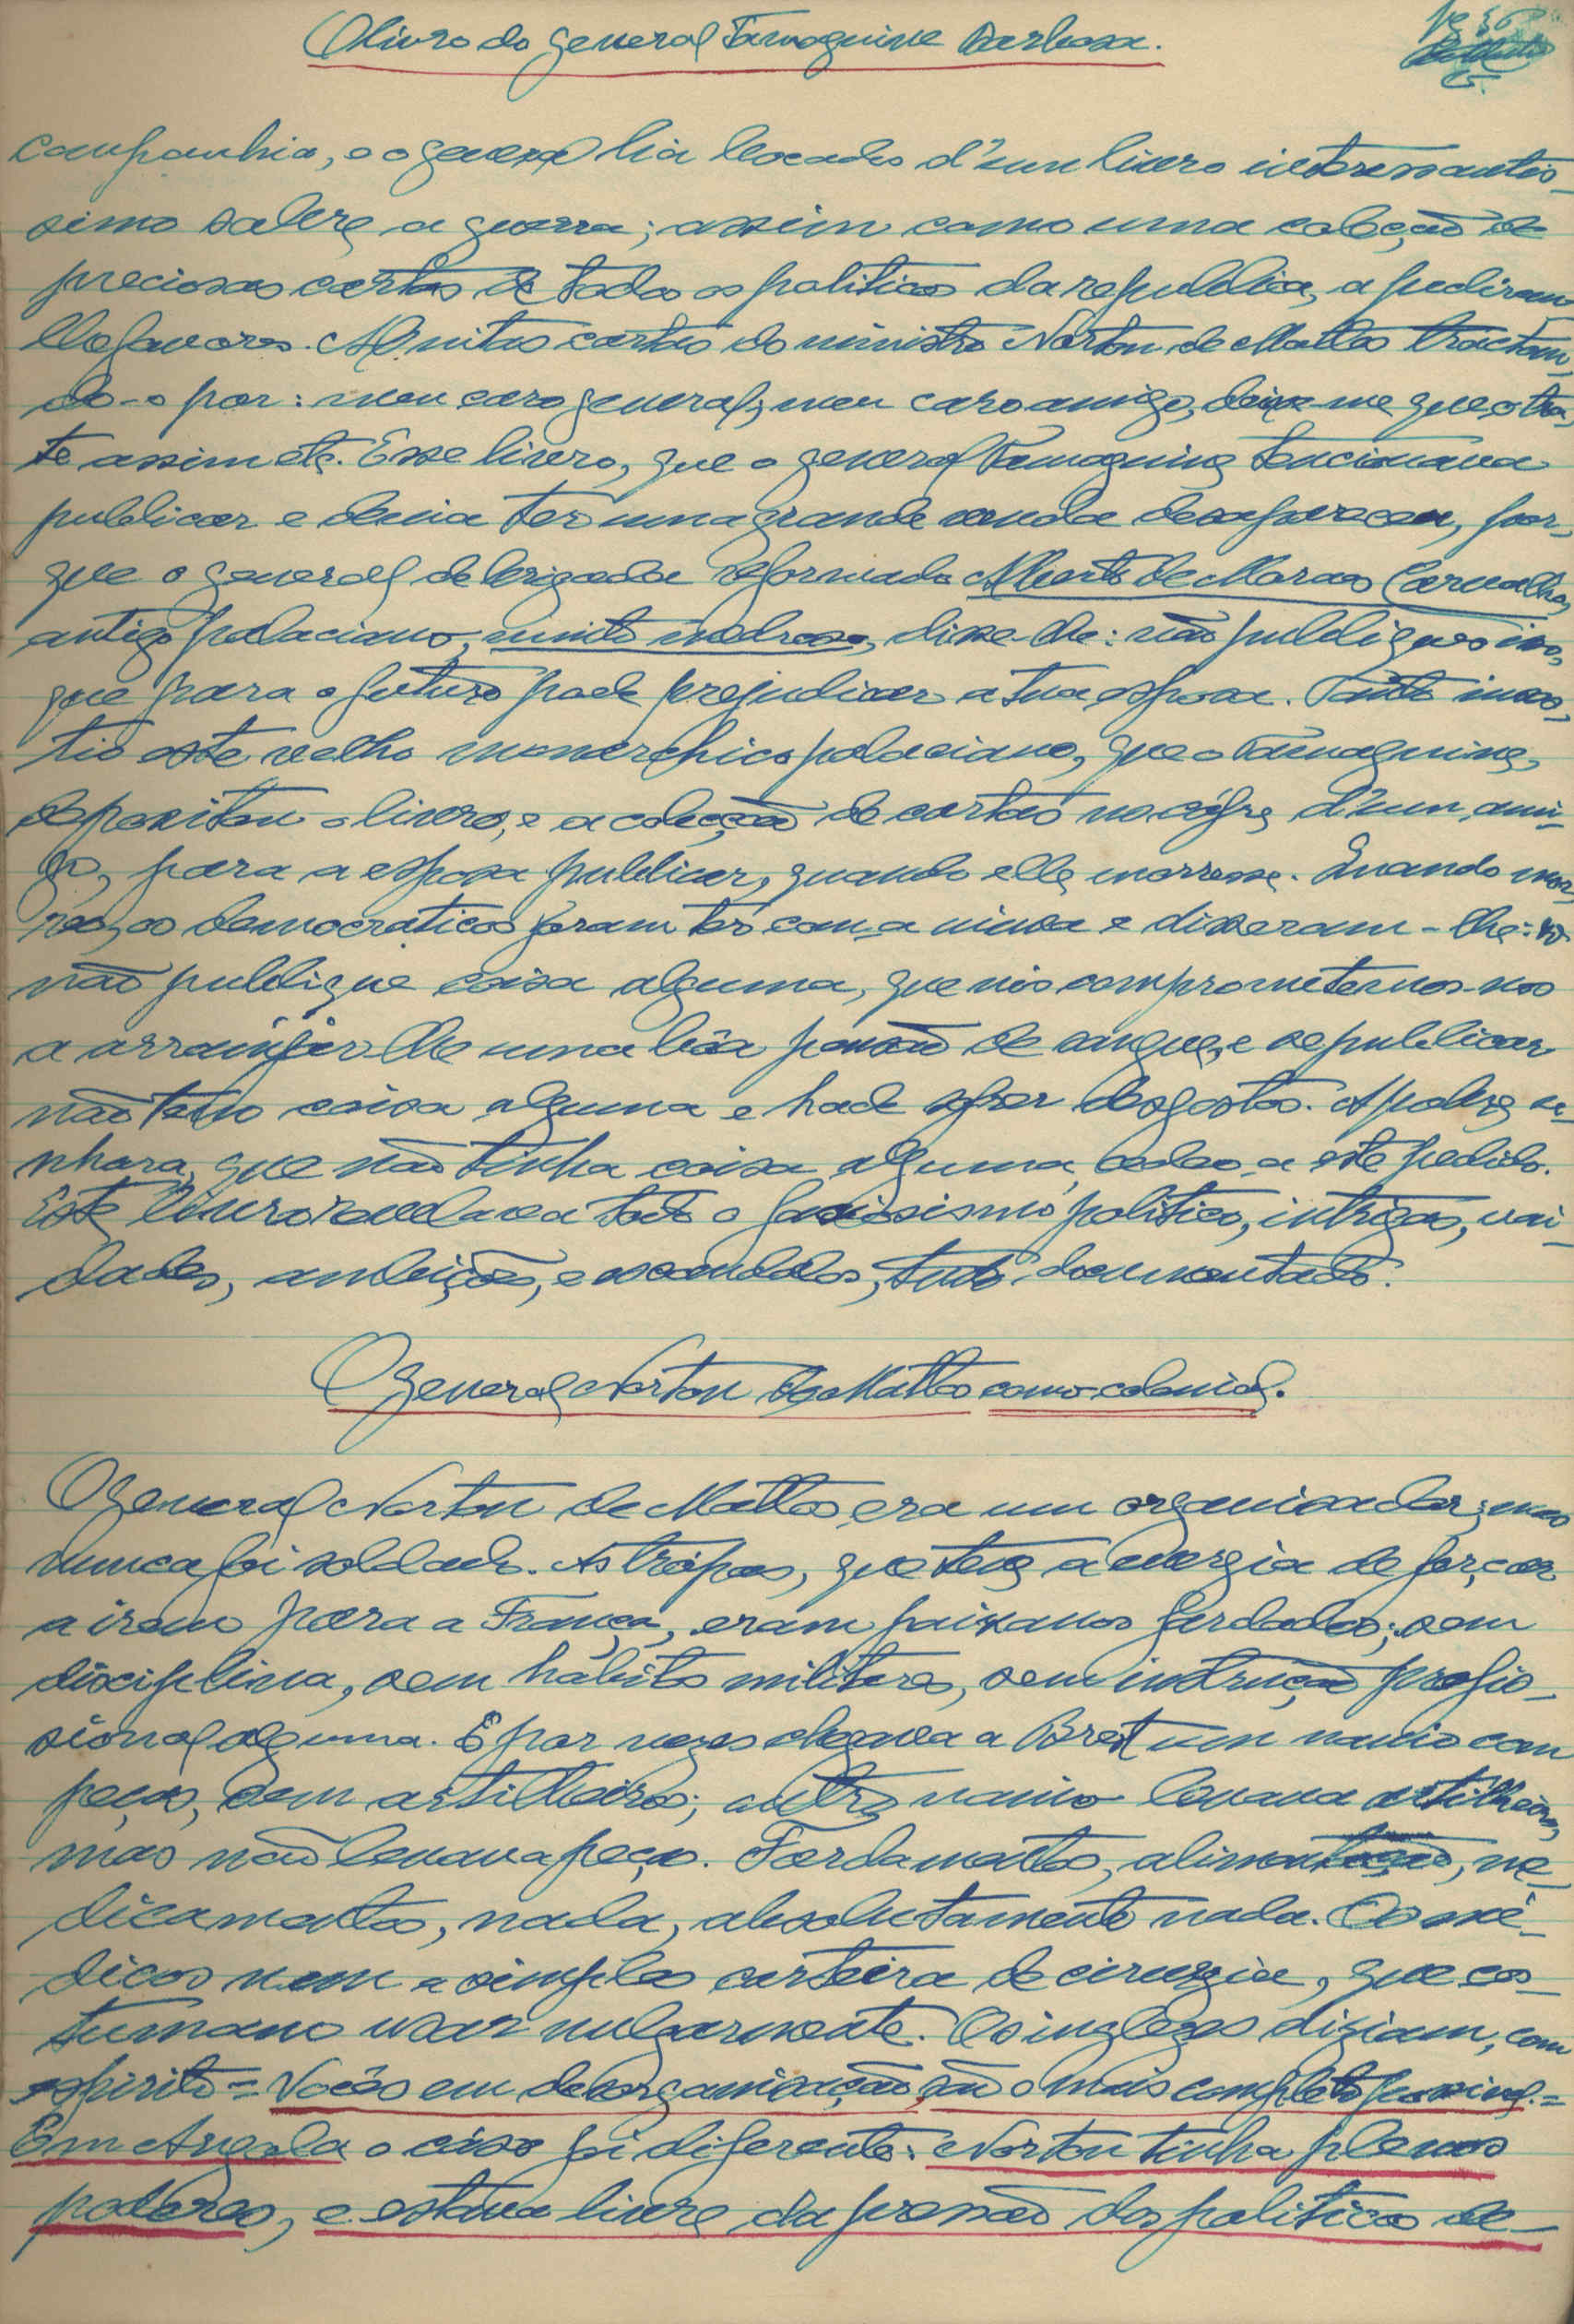 O livro do general Tamagnine Barbosa.
companhia, e o general lia bocados d'um livro interessantis-
simo sobre a guerra; assim como uma coleção de
preciosas cartas de todos os politicos da republica, a pedirem-
lhe favores. Muitas cartas do ministro Norton de Mattos tractan-
do-o por: meu caro general; meu caro amigo, deixe-me que o tra-
te assim etc. Esse livro, que o general Tamagnine tencionava
publicar e devia ter uma grande venda desapareceu, por-
que o general de brigada reformado Alberto de Moraes Carvalho,
antigo palaciano, muito medroso, disse-lhe: não publiques isso,
que para o futuro pode prejudicar a tua esposa. Tanto insis-
tio este velho monarchico palaciano, que o Tamagnine,
depositou o livro, e a coleção de cartas no cofre d'um ami-
go, para a esposa publicar, quando elle morresse. Quando mor-
reo, os democraticos foram ter com a viuva e disseram-lhe:
não publique coisa alguma, que nós comprometemos-nos
a arranjar-lhe uma bôa pensão de sangue, e se publicar
não tem coisa alguma e hade sofrer desgostos. A pobre se-
nhora, que não tinha coisa alguma, cedeo a este pedido.
Este livro revelava todo o facciosismo politico, intrigas, vai-
dades, ambições, e escandalos, tudo documentado.
O general Norton de Mattos como colonial.
O general Norton de Mattos era um organisador; mas
nunca foi soldado. As trópas, que teve a energia de forçar
a irem para a França, eram paixanos fardados; sem
disciplina, sem habitos militares, sem instrução profis-
sional alguma. E por vezes chegava a Brest um navio com
peças, sem artilheiros; outro navio levava artilheiros,
mas não levava peças. Fardamentos, alimentação, me-
dicamentos, nada, absolutamente nada. Os mé-
dicos nem a simples carteira de cirurgia, que cos-
tumamo usar vulgarmente. Os inglezes diziam, com
espirito = Vocês em desorganisação são o mais completo possivel. =
Em Angola o caso foi diferente: Norton tinha plenos
poderes, e estava livre da pressão dos politicos de-